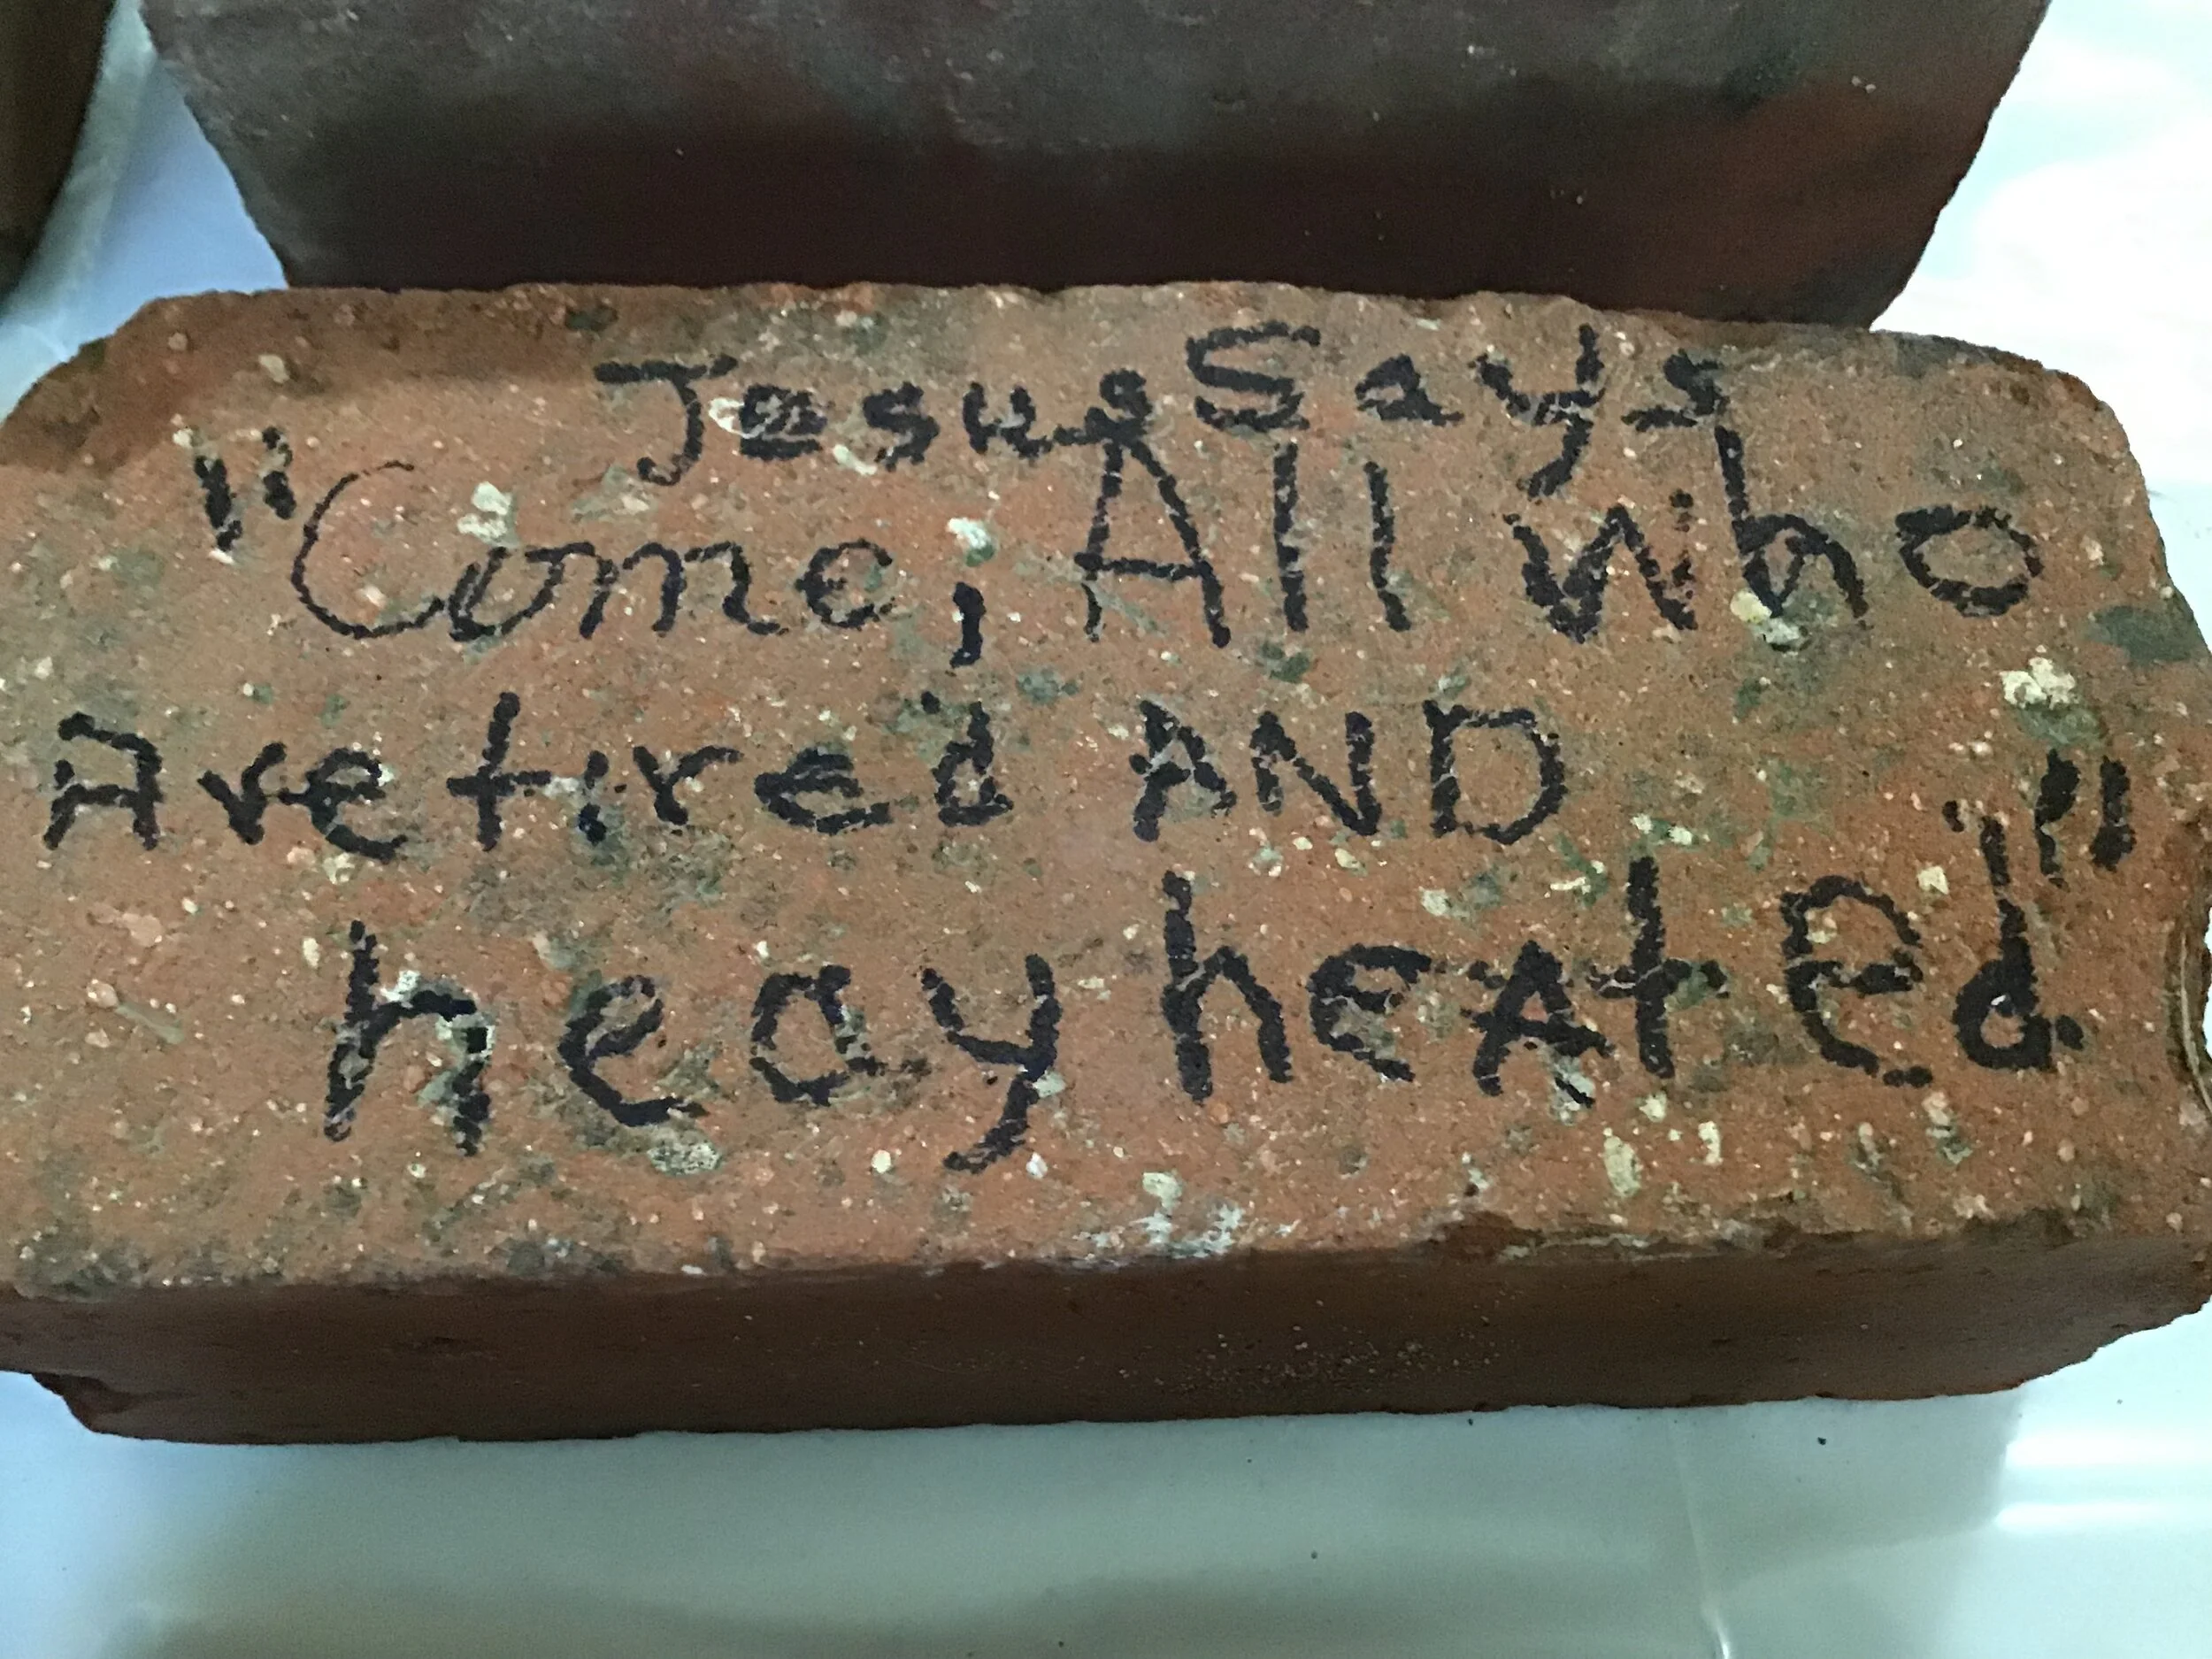 Jesus Says
"Come, All who
Are tired AND
heay heated"